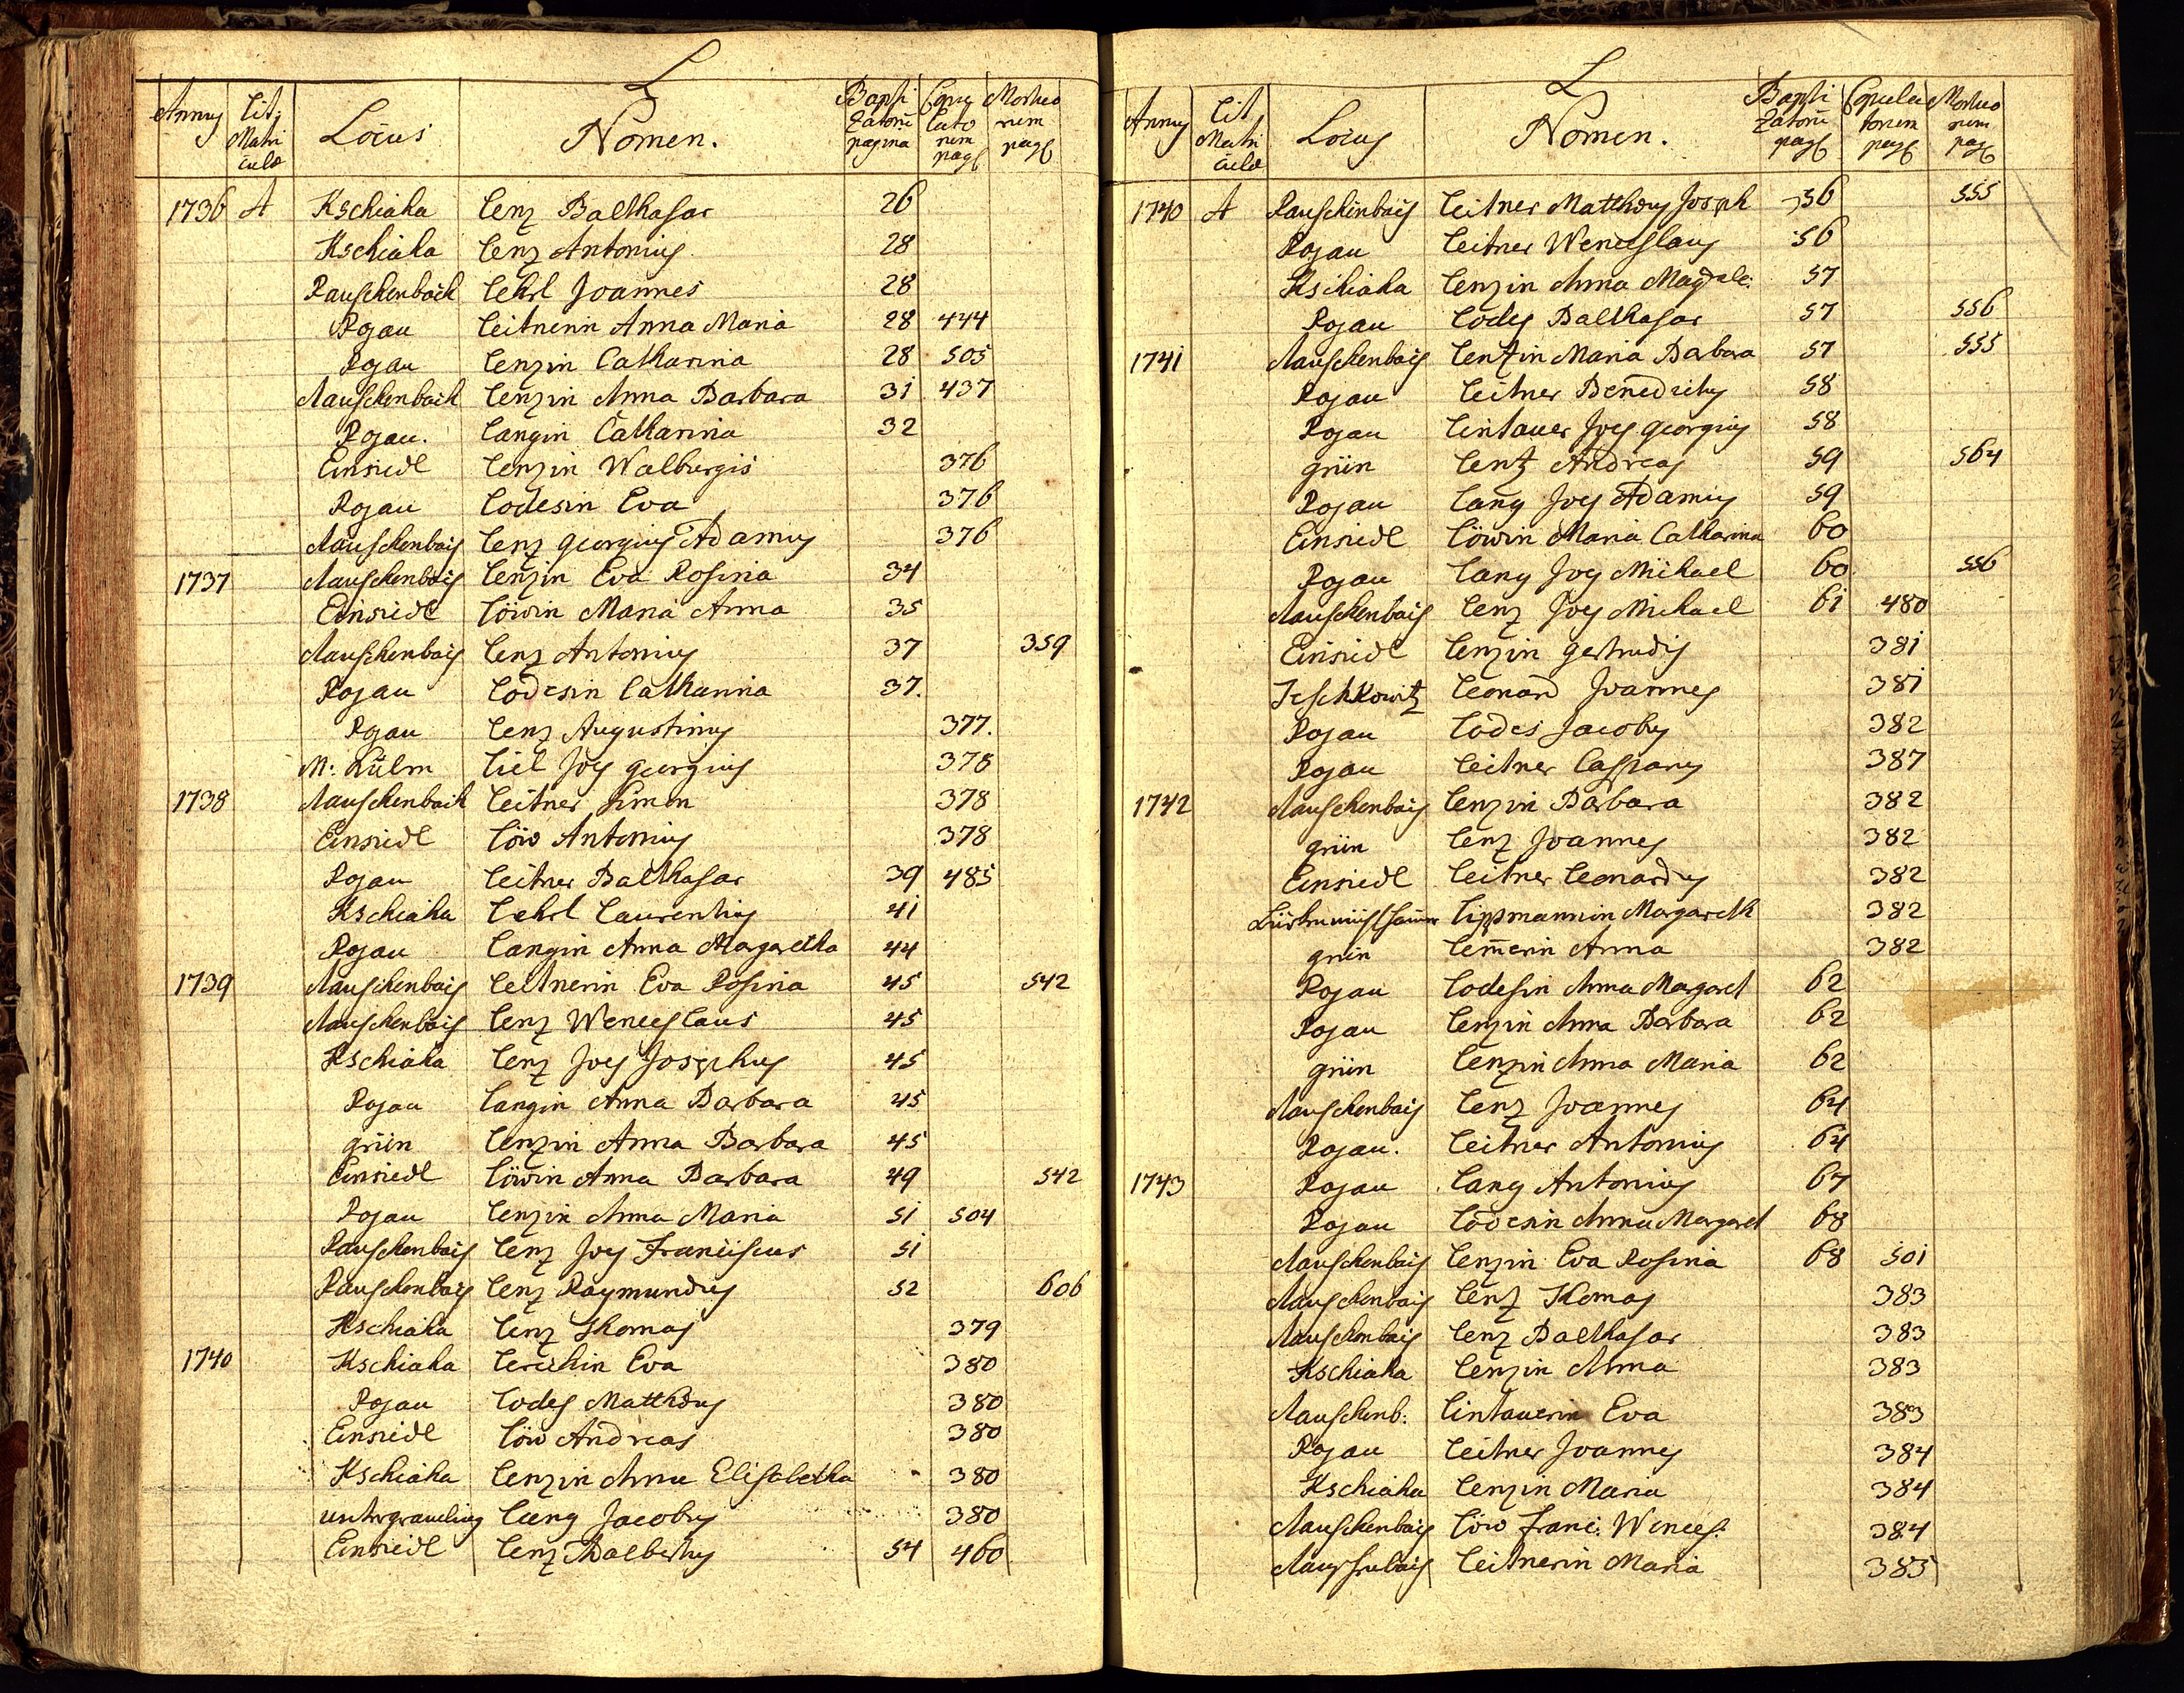 L
Annus Lit: Matriculæ Locus Nomen. Baptizatorū pagina Copulatorum pag Mortuorum pag
1736 A Kschiaha Lenz Balthasar 26
Kschiaha Lenz Antonius 28
Rauschenbach Lehrl Joannes 28
Pojau Leitnerin Anna Maria 28 444
Pojau Lenzin Catharina 28 505
Rauschenbach Lenzin Anna Barbara 31 437
Pojau. Langin Catharina 32
Einsiedl Lenzin Walburgis 376
Pojau Lodesin Eva 376
Rauschenbach Lenz Georgius Adamus 376
1737 Rauschenbach Lenzin Eva Rosina 34
Einsiedl Löwin Maria Anna 35
Rauschenbach Lenz Antonius 37 359
Pojau Lodesin Catharina 37.
Pojau Lenz Augustinus 377.
M: Kulm Liel Joes Georgius 378
1738 Rauschenbach Leitner Simon 378
Einsiedl Löw Antonius 378
Pojau Leitner Balthasar 39 485
Kschiaha Lehrl Laurentius 41
Pojau Langin Anna Margaretha 44
1739 Rauschenbach Leitnerin Eva Rosina 45 542
Rauschenbach Lenz Wenceslaus 45
Kschiaha Lenz Joes Josephus 45
Pojau Langin Anna Barbara 45
grün Lenzin Anna Barbara 45
Einsiedl Löwin Anna Barbara 49 542
Pojau Lenzin Anna Maria 51 504
Rauschenbach Lenz Joes Franciscus 51
Rauschenbach Lenz Raymundus 52 606
Kschiaha Lenz Thomas 379
1740 Kschiaha Eva 380
Pojau Lodes Matthæus 380
Einsiedl Löw Andreas 380
Kschiaha Lenzin Anna Elisabetha 380
untergramling Lang Jacobus 380
Einsiedl Lenz Adalbertus 54 460
L
Annus Lit Matriculæ Locus Nomen. Baptizatorū pag Copulatorum pag Mortuorum pag
1740 A Rauschenbach Leitner Matthæus Joseph 56 555
Pojau Leitner Wenceslaus 56
Kschiaha Lenzin Anna Magdale: 57
Pojau Lodes Balthasar 57 556
1741 Rauschenbach Lentzin Maria Barbara 57 555
Pojau Leitner Benedictus 58
Pojau Lintauer Joes georgius 58
grün Lentz Andreas 59 564
Pojau Lang Joes Adamus 59
Einsiedl Löwin Maria Catharina 60
Pojau Lang Joes Michael 60 556
Rauschenbach Lenz Joes Michael 61 480
Einsiedl Lenzin Gertrudis 381
Teschkowitz Leonard Joannes 381
Pojau Lodes Jacobus 382
Pojau Leitner Casparus 387
1742 Rauschenbach Lenzin Barbara 382
grün Lenz Joannes 382
Einsiedl Leitner Leonardus 382
Lippmannin Margareth 382
grün Lem̄erin Anna 382
Pojau Lodesin Anna Margaret 62
Pojau Lenzin Anna Barbara 62
grün Lenzin Anna Maria 62
Rauschenbach Lenz Joannes 64
Pojau. Leitner Antonius 64
1743 Pojau Lang Antonius 67
Pojau Lodesin Anna Margaret 68
Rauschenbach Lenzin Eva Rosina 68 501
Rauschenbach Lenz Thomas 383
Rauschenbach Lenz Balthasar 383
Kschiaha Lenzin Anna 383
Rauschenb: Lintauerin Eva 383
Pojau Leitner Joannes 384
Kschiaha Lenzin Maria 384
Rauschenbach Löw Franc: Wences: 384
Leitnerin Maria 385